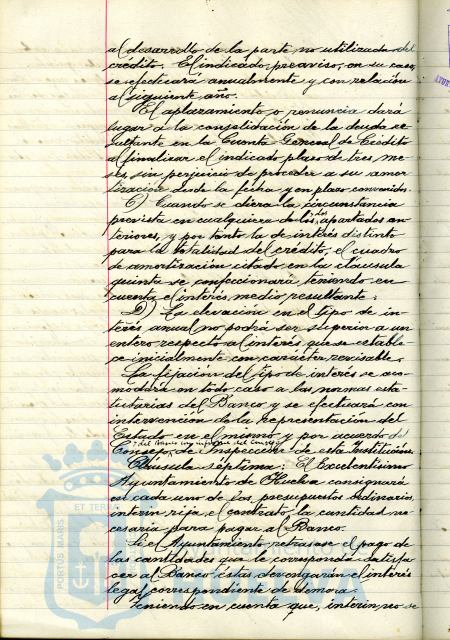 al desarrollo de la parte no utilizada del
crédito. El indicado preaviso, en su caso,
se efectuará anualmente y con relación
al siguiente año.
El aplazamiento o renuncia dará
lugar á la consolidación de la deuda re-
sultante en la Cuenta General de Crédito
al finalizar el indicado plazo de tres me-
ses, sin perjuicio de proceder a su amor-
tización desde la fecha y en plazo convenidos.
C) Cuando se diera la circunstancia
prevista en cualquiera de los apartados an-
teriores, y por tanto la de interés distinto
para la totalidad del crédito, el cuadro
de amortización citado en la cláusula
quinta se confeccionará teniendo en
cuenta el interés medio resultante.
D) La elevación en el tipo de in-
terés anual no podrá ser superior a un
entero respecto al interés que se estable-
ce inicialmente con carácter revisable.
La fijación del tipo de interés se aco-
modará en todo caso a las normas esta-
tutarias del Banco y se efectuará con
intervención de la representación del
Estado en el mismo y por acuerdo del
Consejo, de Inspección de esta Institución.
Cláusula séptima: El Excelentísimo
Ayuntamiento de Huelva consignará
en cada uno de los presupuestos ordinarios,
interin rija el contrato, la cantidad ne-
cesaria para pagar al Banco.
Si el Ayuntamiento retrasase el pago de
las cantidades que le corresponda satisfa-
cer al Banco, éstas devengarán el interés
legal correspondiente de demora
Teniendo en cuenta que, interin, no se
PORTUS MARIS
ET TERR